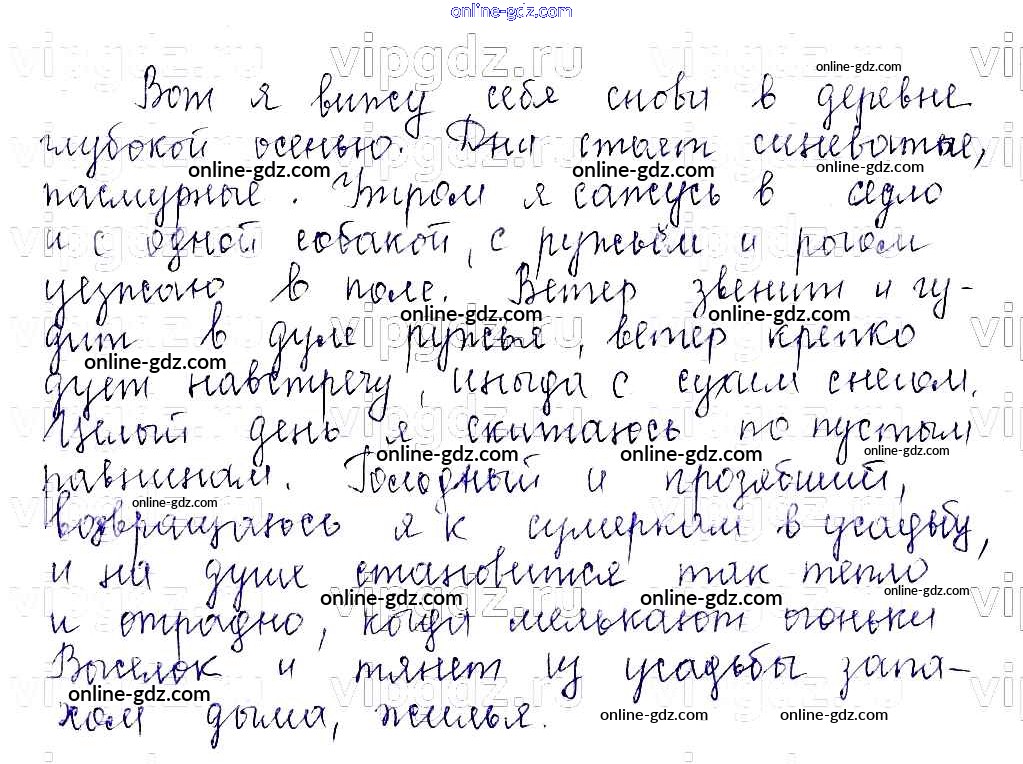 online-gdz.com
vipgdz.ru vipgdz.ru vipgdz.ru
online-gdz.com
Вот я вижу себя снова в деревне
глубокой осенью. Дни стоят синеватые,
online-gdz.com online-gdz.com online-gdz.com
пасмурные. Утром я сажусь в седло
и с одной собакой, с ружьём и рогом
уезжаю в поле. Ветер звенит и гу-
online-gdz.com online-gdz.com
дит в дуле ружья, ветер крепко
online-gdz.com
дует навстречу, иногда с сухим снегом.
Целый день я скитаюсь по пустым
online-gdz.com online-gdz.com online-gdz.com
равнинам. Голодный и прозябший,
online-gdz.com
возвращаюсь я к сумеркам в усадьбу,
и на душе становится так тепло
online-gdz.com online-gdz.com online-gdz.com
и отрадно, когда мелькают огоньки
Выселок и тянет из усадьбы запа-
online-gdz.com
хом дыма, жилья.
online-gdz.com online-gdz.com